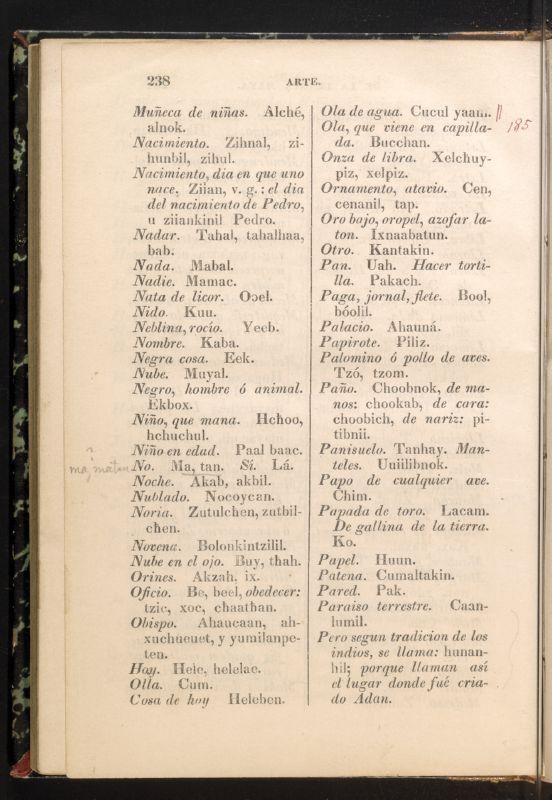 238
ARTE.
Muñeca de niñas. Alché,
alnok.
Nacimiento. Zihnal, zi-
hunbil, zihul.
Nacimiento, dia en que uno
nace, Ziian, v. g.: el dia
del nacimiento de Pedro,
u ziiankinil Pedro.
Nadar. Tahal, tahalhaa,
bab.
Nada. Mabal.
Nadie. Mamac.
Nata de licor. Oɔel.
Nido. Kuu.
Neblina, rocío. Yeeb.
Nombre. Kaba.
Negra cosa. Eek.
Nube. Muyal.
Negro, hombre ó animal.
Ekbox.
Niño, que mana. Hchoo,
hchuchul.
Niño en edad. Paal baac.
No. Ma, tan. Sí. Lá.
Noche. Akab, akbil.
Nublado. Nocoycan.
Noria. Zutulchen, zutbil-
chen.
Novena. Bolonkintzilil.
Nube en el ojo. Buy, thah.
Orines. Akzah, ix.
Oficio. Be, beel, obedecer:
tzic, xoc, chaathan.
Obispo. Ahaucaan, ah-
xuchueuet, y yumilanpe-
ten.
Hoy. Hele, helelae.
Olla. Cum.
Cosa de hoy Heleben.
ma, matan
Ola de agua. Cucul yaam.
185
Ola, que viene en capilla-
da. Bucchan.
Onza de libra. Xelchuy-
piz, xelpiz.
Ornamento, atavio. Cen,
cenanil, tap.
Oro bajo, oropel, azofar la-
ton. Ixnaabatun.
Otro. Kantakin.
Pan. Uah. Hacer torti-
lla. Pakach.
Paga, jornal, flete. Bool,
bóolil.
Palacio. Ahauná.
Papirote. Piliz.
Palomino ó pollo de aves.
Tzó, tzom.
Paño. Choobnok, de ma-
nos: chookab, de cara:
choobich, de nariz: pi-
tibnii.
Panisuelo. Tanhay. Man-
teles. Uuiilibnok.
Papo de cualquier ave.
Chim.
Papada de toro. Lacam.
De gallina de la tierra.
Ko.
Papel. Huun.
Patena. Cumaltakin.
Pared. Pak.
Paraiso terrestre. Caan-
lumil.
Pero segun tradicion de los
indios, se llama: hunan-
hil; porque llaman así
el lugar donde fué cria-
do Adan.